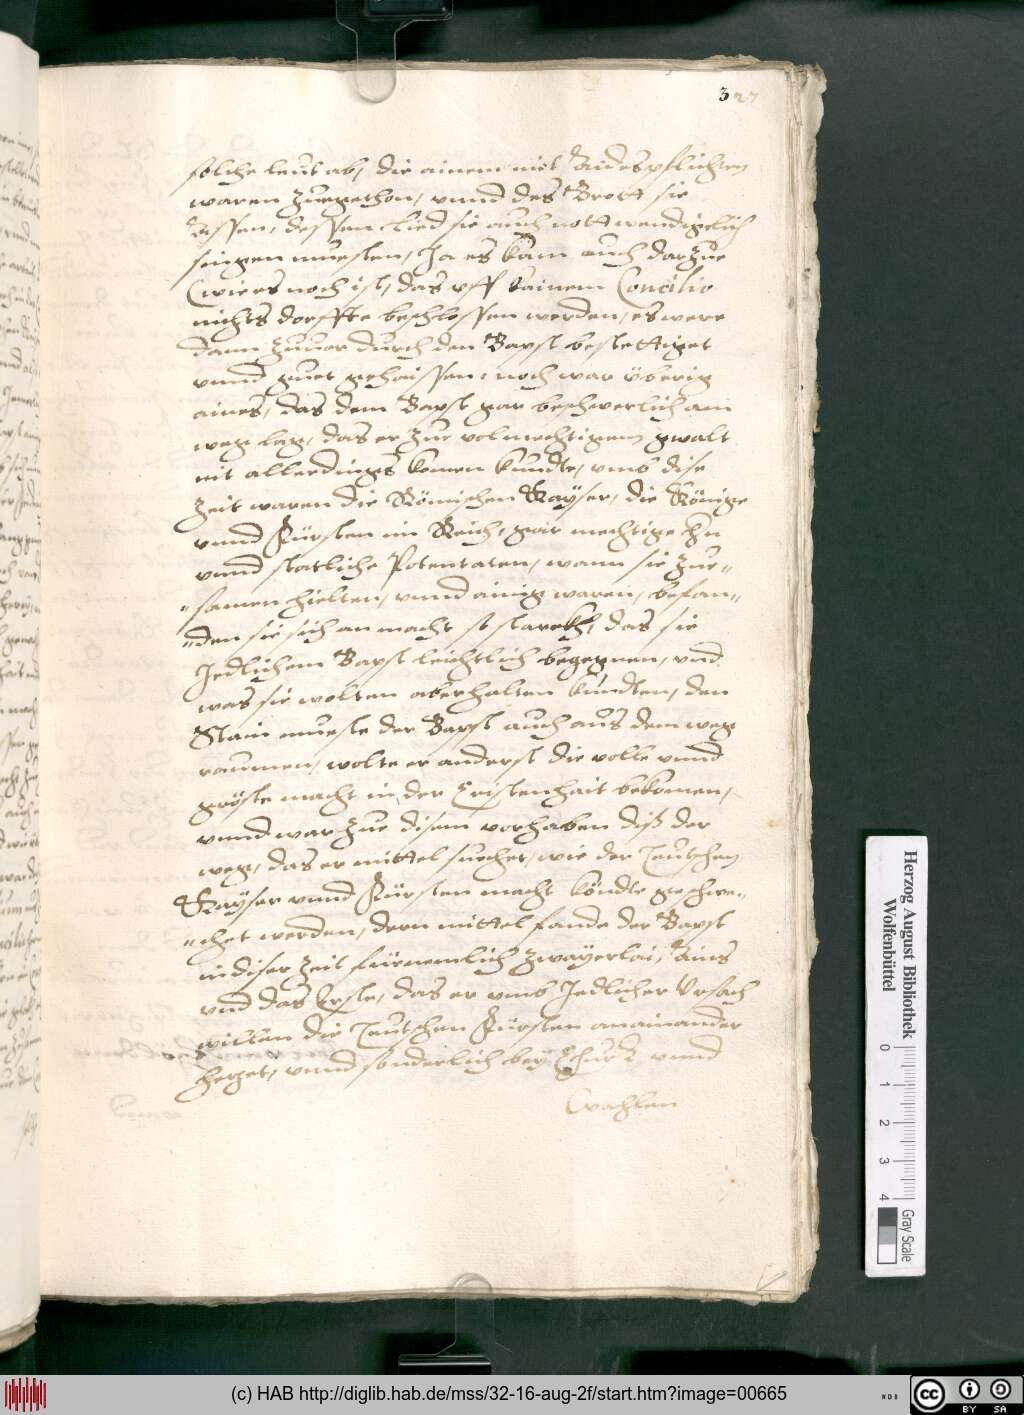 327
solche leut ab, die ainem mit Aidespflichten
waren zuegethon, vnnd des Brott sie
Assen, dessen Lied sie auch nottwendigelich
singen muesten, Ja es kam auch darzue
(wie es noch ist, das vff kainem Concilio
nichts dorffte beschlossen werden, es were
dann zuuor durch den Bapst bestettiget
vnnd guet gehaissen, noch war überig
aines, das dem Bapst gar beschwerlich am
weg lag, das er zue volmechtigem gwalt
nit allerdings komen kundte, vmb dise
Zeit waren die Römischen Kayser, die Könige
vnnd Fürsten im Reich, gar mechtige
vnnd statliche Potentaten, wann sie zue=
=samen hielten, vnnd ainig waren, befan=
=den sie sich an macht so starckh, das sie
Jedlichem Bapst leichtlich begegnen, vnd
was sie wolten aberhalten kundten, den
Stain mueste der Bapst auch aus dem weg
raumen, wolte er anderst die volle vnnd
gröste macht in der Cristenhait bekomen,
vnnd war zue disem vorhaben diß der
weg, das er mittel suechet, wie der Teutschen
Kayser vnnd Fürsten macht köndte geschwe=
=chet werden, dern mittel fande der Bapst
in diser Zeit fürnemlich zwayerlai, Ains
vnd das Erste, das er vmb Jedlicher Vrsach
willen die Teutschen Fürsten anainander
hezet, vnnd sonderlich bey Chur vnnd
Wachlen
Herzog August Bibliothek
Wolfenbüttel
0 1 2 3 4
Gray Scale
(c) HAB http://diglib.hab.de/mss/32-16-aug-2f/start.htm?image=00665
cc BY SA